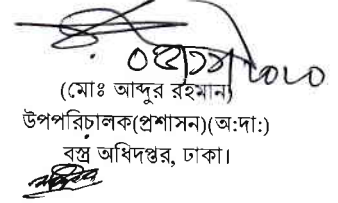 (মোঃ আব্দুর রহমান)
উপপরিচালক(প্রশাসন)(অ:দা:)
বস্ত্র অধিদপ্তর, ঢাকা।